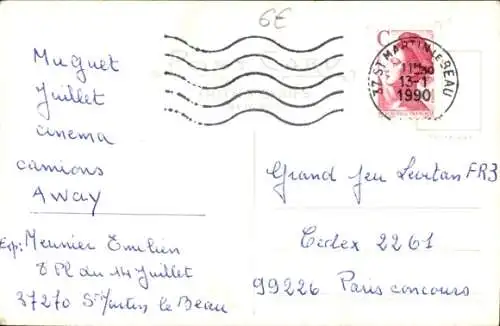 6€
C
37 ST MARTIN LE BEAU
11H30
13-1
1990
Muguet
Juillet
cinema
camions
AWAY
Exp: Meunier Emilien
8 Pl du 14 Juillet
37270 St Martin le Beau
Grand Jeu Levitan FR3
Cedex 2261
99226 Paris concours